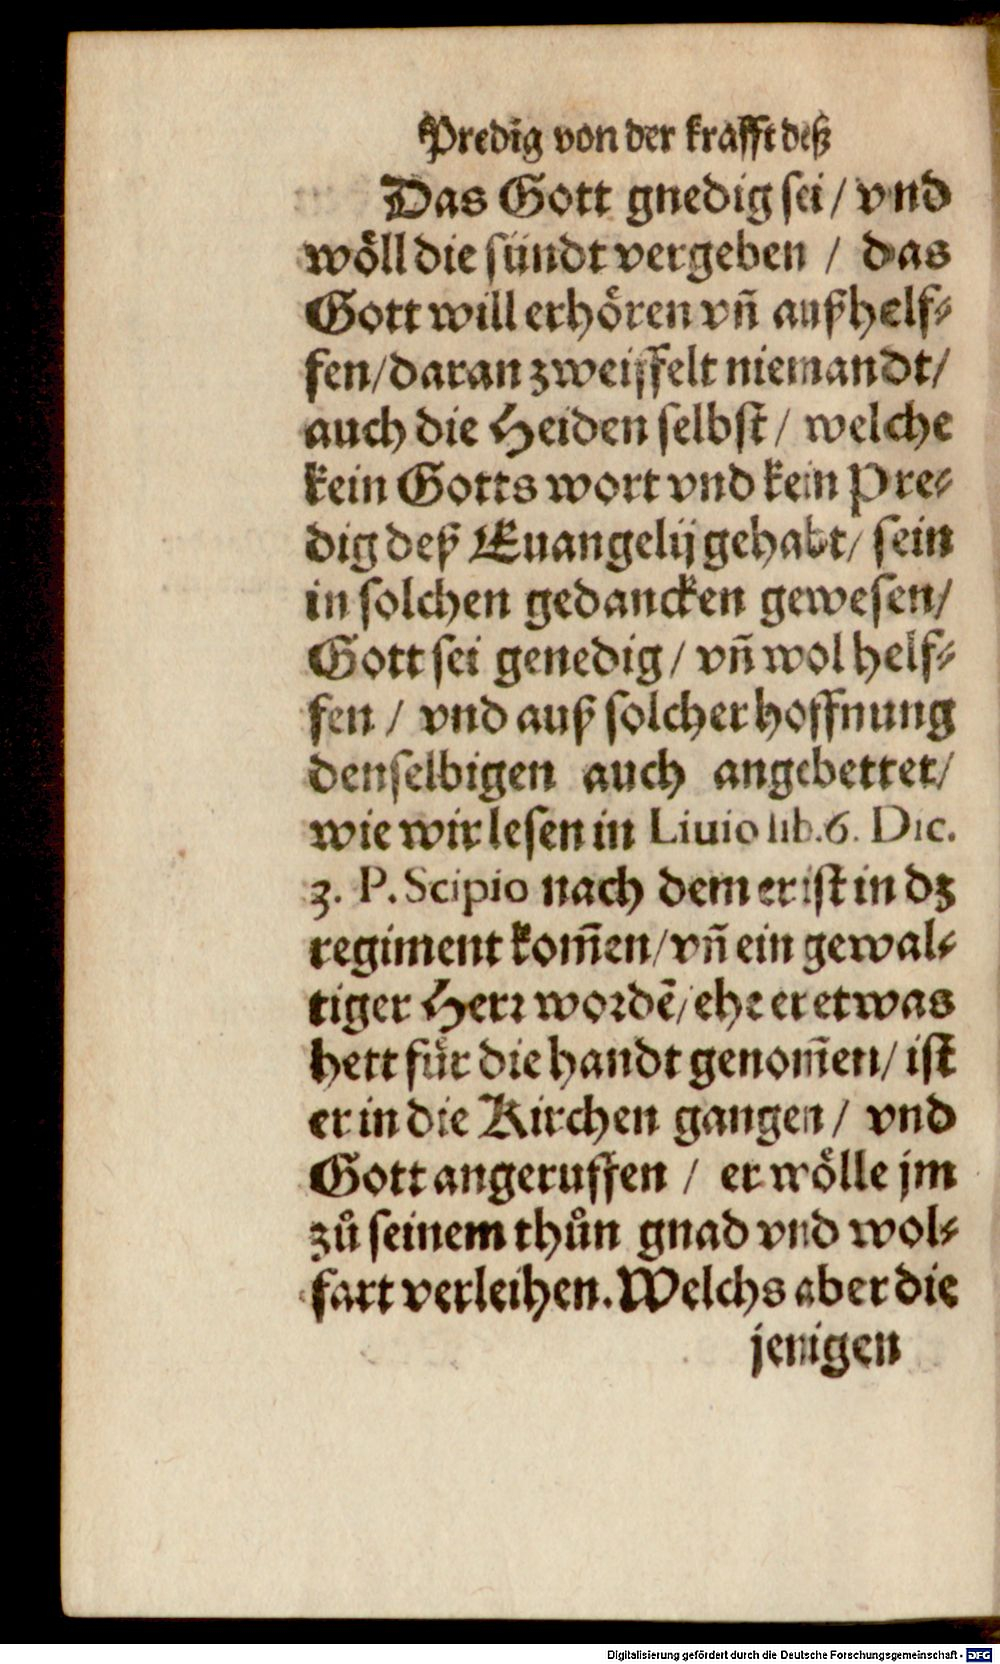 Predig von der krafft deß
Das Gott gnedig sei / vnd
wöll die sündt vergeben / das
Gott will erhören vñ außhelf⸗
fen / daran zweiffelt niemandt /
auch die Heiden selbst / welche
kein Gotts wort vnd kein Pre⸗
dig deß Euangelij gehabt / sein
in solchen gedancken gewesen /
Gott sei genedig / vñ wol helf⸗
fen / vnd auß solcher hoffnung
denselbigen auch angebettet /
wie wir lesen in Liuio lib. 6. Dec.
3. P. Scipio nach dem er ist in dz
regiment kom̃en / vñ ein gewal⸗
tiger Herr wordẽ / ehe er etwas
hett für die handt genom̃en / ist
er in die Kirchen gangen / vnd
Gott angeruffen / er wölle jm
zů seinem thůn gnad vnd wol⸗
fart verleihen. Welchs aber die
jenigen
Digitalisierung gefördert durch die Deutsche Forschungsgemeinschaft - DFG